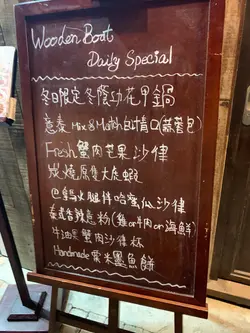 Wooden Boat
Daily Special
冬日限定冬蔭功花甲鍋
意泰 Mix & Match 包情(蒜蓉包)
Fresh 蟹肉芒果沙律
炭燒原隻大虎蝦
火腿伴哈蜜瓜沙律
泰式香辣意粉(雞or牛肉or海鮮)
牛油果蟹肉沙律杯
Handmade 粟米墨魚餅